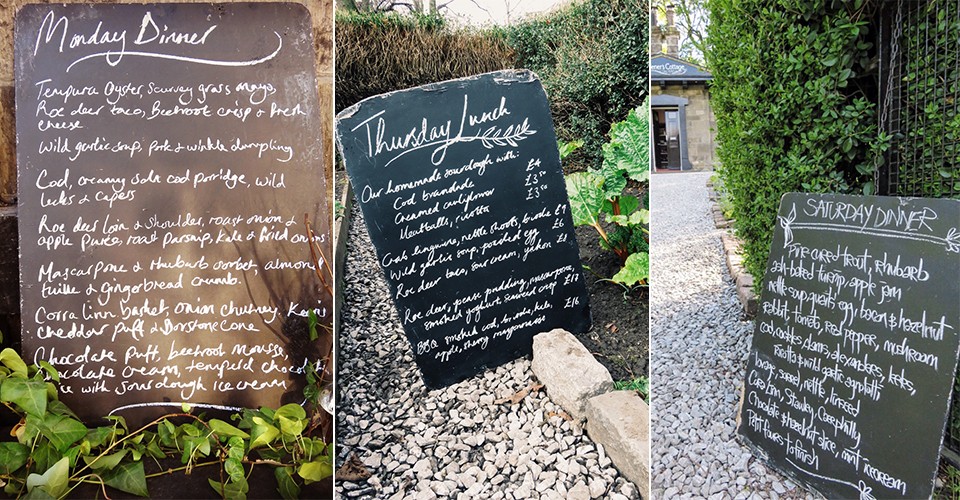 Monday Dinner
Tempura Oyster, Scurvey grass mayo,
Roe deer taco, Beetroot crisp & fresh
cheese
Wild garlic soup, pork & winkle dumpling
Cod, creamy salt cod porridge, wild
leeks & capers
Roe deer loin & shoulder, roast onion &
apple purée, roast parsnip, kale & fried onions
Mascarpone & rhubarb sorbet, almond
tuille & gingerbread crumb.
Corra linn basket, onion chutney,
cheddar puff & Dorstone cone
Chocolate Puff, beetroot mousse,
chocolate cream, temper'd chocolate
with sourdough ice cream
Thursday Lunch
Our homemade sourdough with:
Cod brandade £4
Creamed cauliflower £3.50
Meatballs, ricotta £3.50
Crab linguine, nettle shoots, £9
Wild garlic soup, poached egg £6
Roe deer taco, sour cream,
Roe deer, pease pudding, mascarpone, £17
smoked yoghurt, scurvey crisp
BBQ smoked cod, kale, £16
apple, mayonnaise
Owner's Cottage
SATURDAY DINNER
Pine cured trout, rhubarb
ash-baked turnip, apple jam
nettle soup, quails' egg, bacon & hazelnut
rabbit, tomato, red pepper, mushroom
cod, cockles, clams, alexanders, leeks,
risotto & wild garlic
sorrel, nettle, linseed
Cora Linn,
Chocolate & hazelnut slice, mint icecream
Petit fours to finish